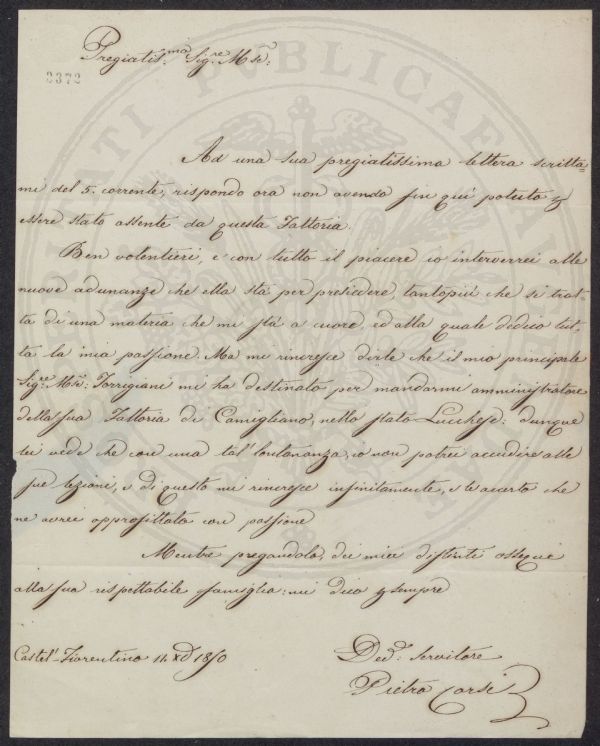 Pregiatis:ma Sig:re M.se:
2372
Ad una sua pregiatissima lettera scritta=
mi del 5. corrente, rispondo ora non avendo fin quì potuto p
essere stato assente da questa Fattoria.
Ben volentieri, e con tutto il piacere io interverrei alle
nuove adunanze che ella stà per presiedere, tantopiù che si trat=
ta di una materia che mi stà a cuore, ed alla quale dedico tut=
ta la mia passione. Ma mi rincresce dirle che il mio principale
Sig:re M.se: Torregiani mi ha destinato per mandarmi amministratore
della sua Fattoria di Camigliano, nello stato Lucchese: dunque
lei vede che con una tal' lontananza, io non potrei accudire alle
sue lezioni, e di questo mi rincresce infinitamente, e le accerto che
ne avrei approfittato con passione
Mentre pregandola, dei miei distinti ossequi
alla sua rispettabile famiglia: mi dico p sempre
Castel'-Fiorentino 11. Xd 1850
Ded: Servitore
Pietro Corsi